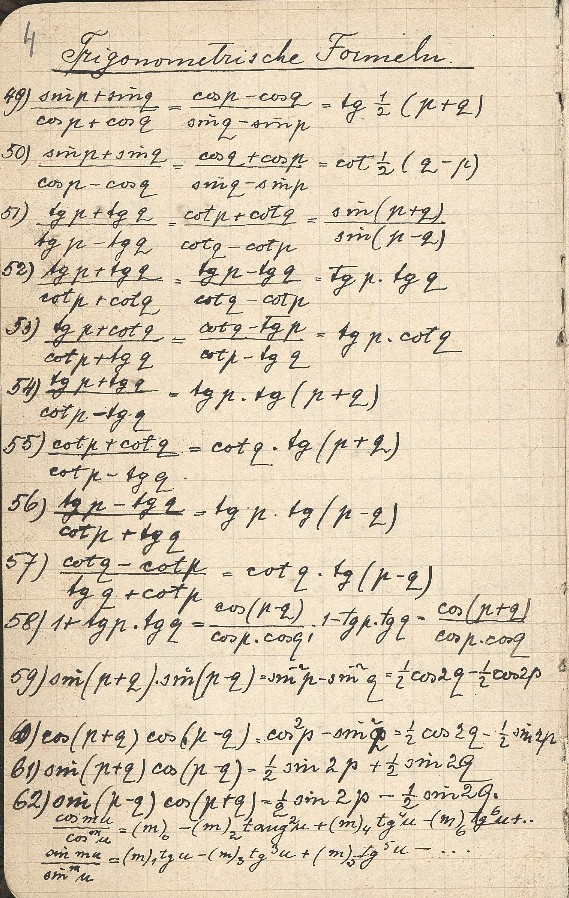 4
Trigonometrische Formeln.
49) (sin p + sin q)/(cos p + cos q) = (cos p - cos q)/(sin q - sin p) = tg 1/2 (p+q)
50) (sin p + sin q)/(cos p - cos q) = (cos q + cos p)/(sin q - sin p) = cot 1/2 (q-p)
51) (tg p + tg q)/(tg p - tg q) = (cot p + cot q)/(cot q - cot p) = sin(p+q)/sin(p-q)
52) (tg p + tg q)/(cot p + cot q) = (tg p - tg q)/(cot q - cot p) = tg p . tg q
53) (tg p + cot q)/(cot p + tg q) = (cot q - tg p)/(cot p - tg q) = tg p . cot q
54) (tg p + tg q)/(cot p - tg q) = tg p . tg (p+q)
55) (cot p + cot q)/(cot p - tg q) = cot q . tg (p+q)
56) (tg p - tg q)/(cot p + tg q) = tg p . tg (p-q)
57) (cot q - cot p)/(tg q + cot p) = cot q . tg (p-q)
58) 1 + tg p . tg q = cos(p-q)/(cos p . cos q), 1 - tg p . tg q = cos(p+q)/(cos p . cos q)
59) sin(p+q) . sin(p-q) = sin² p - sin² q = 1/2 cos 2q - 1/2 cos 2p
60) cos(p+q) cos(p-q) = cos² p - sin² q = 1/2 cos 2q - 1/2 sin 2p
61) sin(p+q) cos(p-q) = 1/2 sin 2p + 1/2 sin 2q
62) sin(p-q) cos(p+q) = 1/2 sin 2p - 1/2 sin 2q.
cos mu/cos^m u = (m)₀ - (m)₂ tang² u + (m)₄ tg⁴ u - (m)₆ tg⁶ u + ..
sin mu/sin^m u = (m)₁ tg u - (m)₃ tg³ u + (m)₅ tg⁵ u - ....